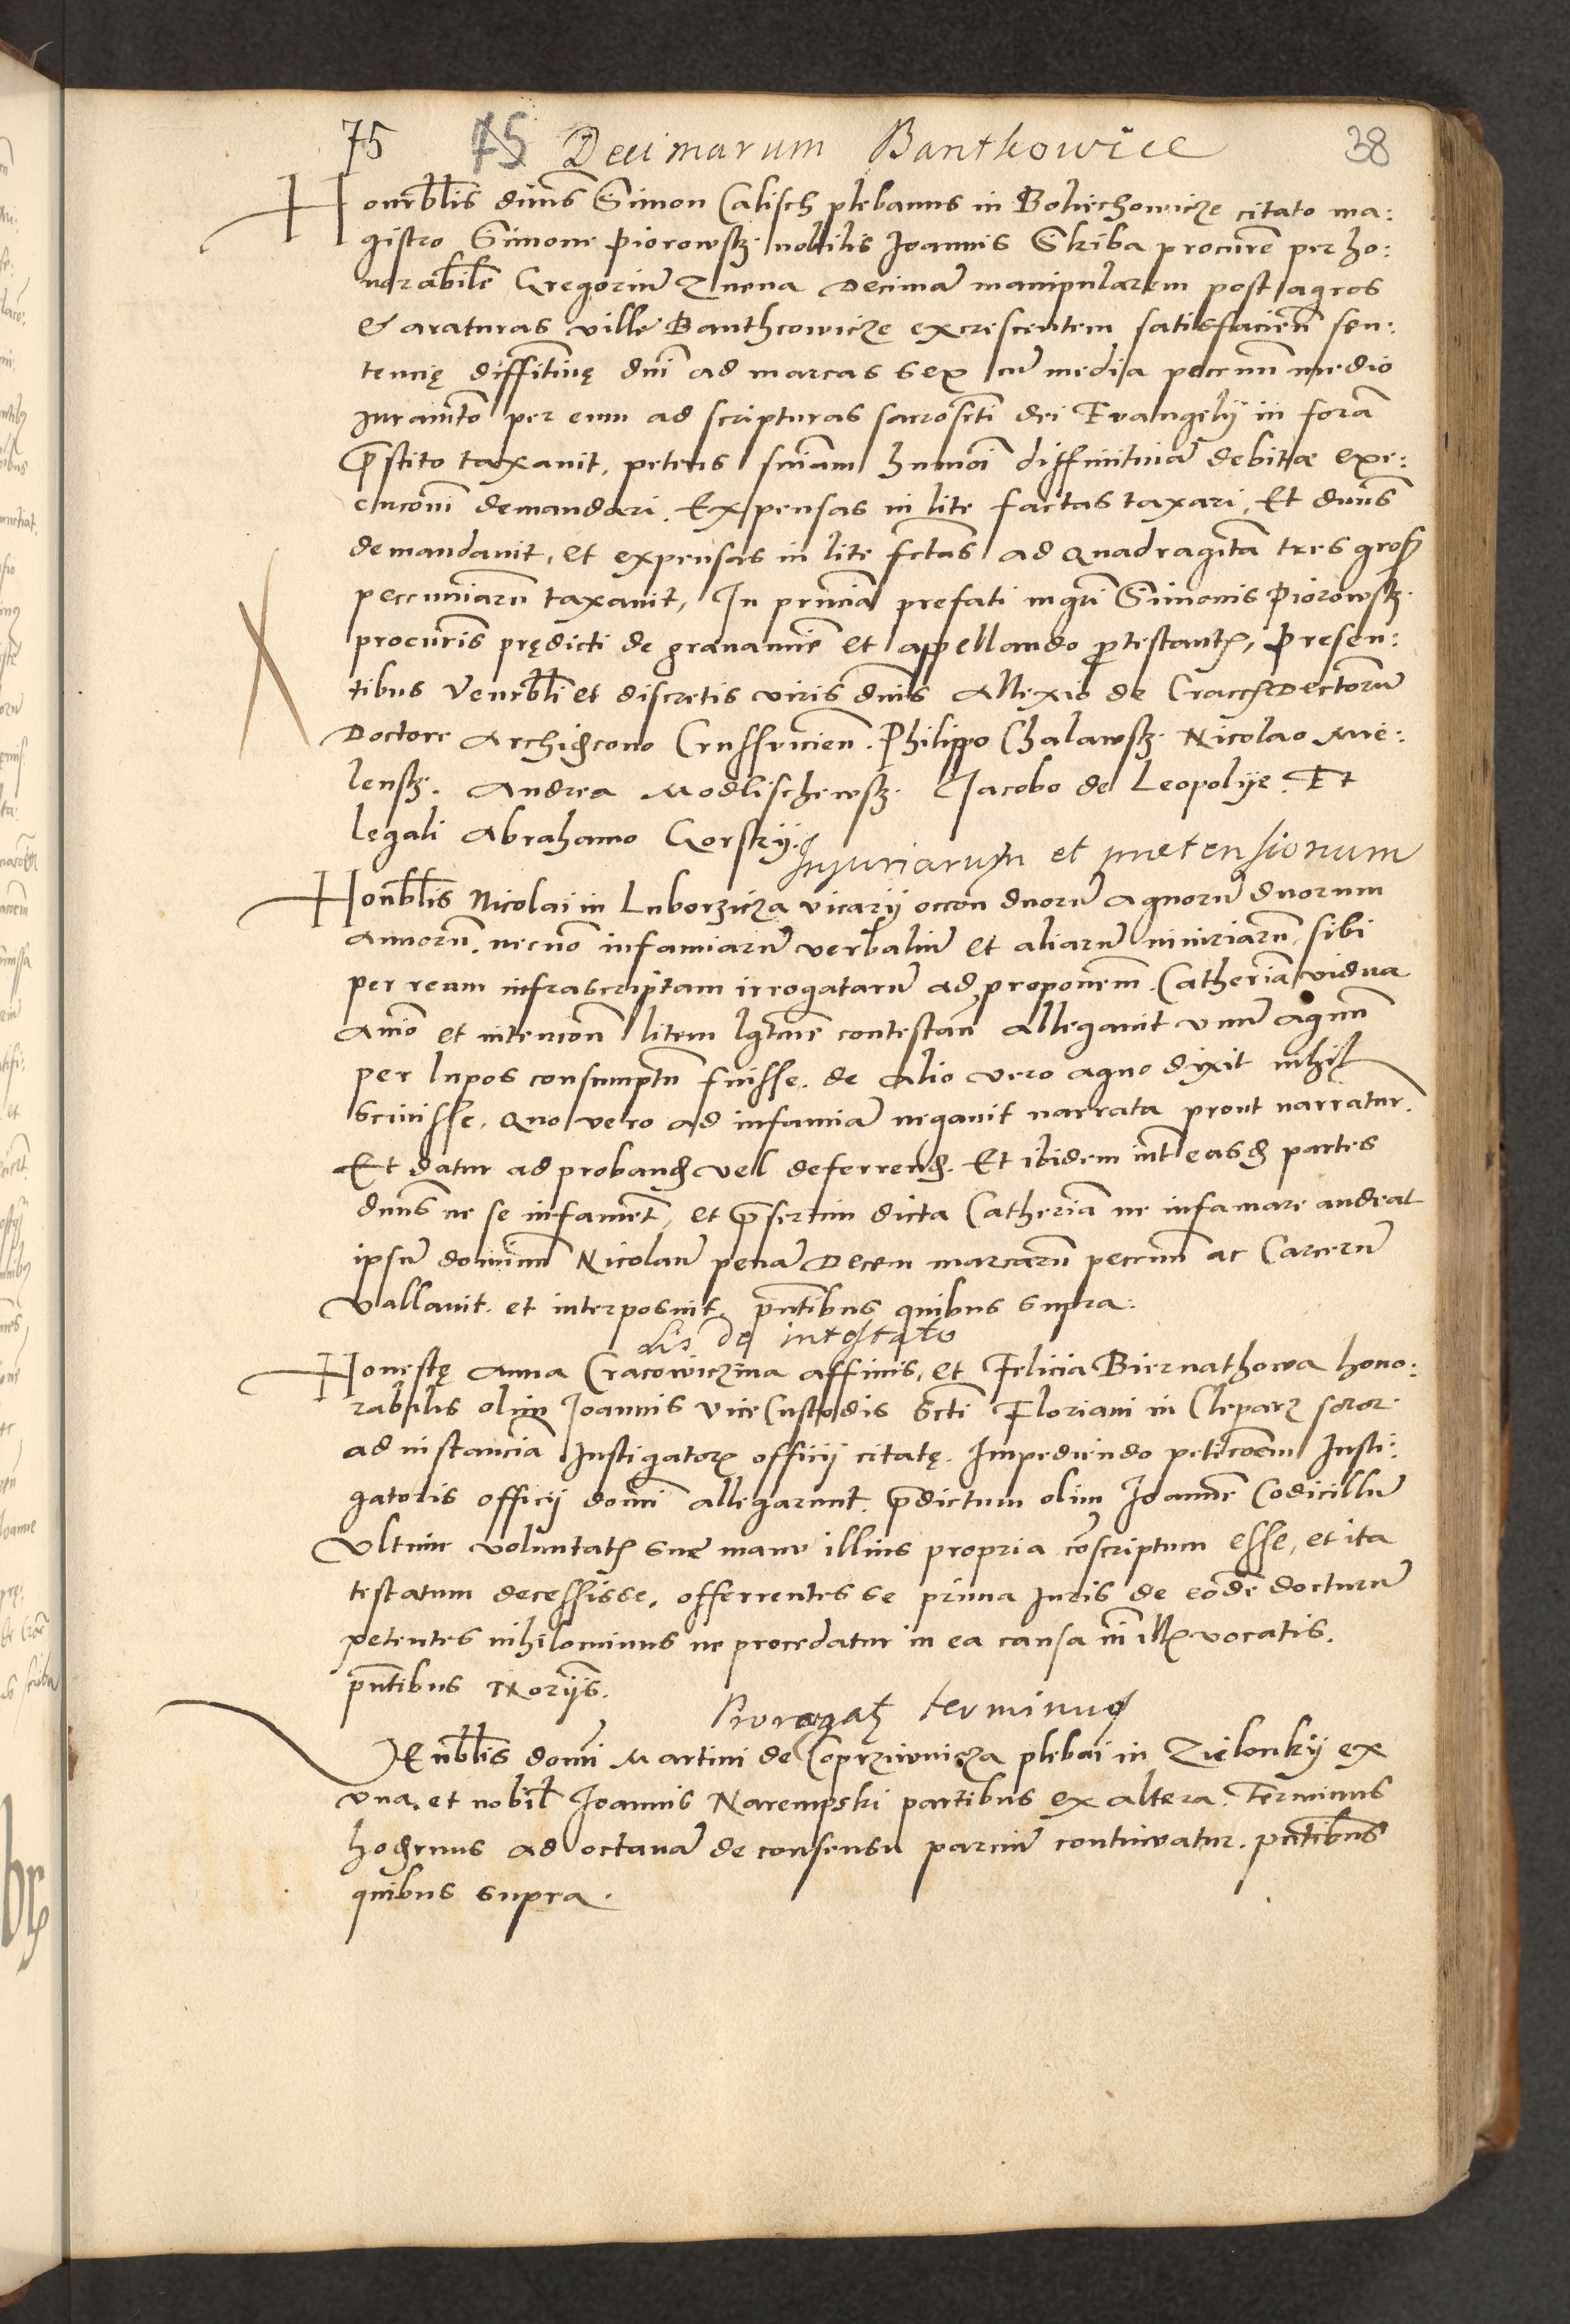 75 75 Decimarum Banthowice 38
Honrblis dnus Simon Calisch plebanus in Boliechowicze citato ma:
gistro Simone Piorowsk. nobilis Joannis Skiba procure per ho:
norabile Gregoriu Znena decima manipularem post agros
& araturas ville Banthcowicze excrescentem satisfacien sen:
tencię diffitiuę dni ad marcas sex cu media peccun medio
Juramto per eum ad scripturas sacroscti dei Evangelÿ in fora
p̄stito taxauit, petens sniam hmoi diffinitiua debitæ exe:
cuconi demandari. Expensas in lite factas taxari, Et dnus
demandauit, et expensas in lite fctas ad Quadraginta tres gros
peccuniaru taxauit, In pnncia prefati mgri Simonis Piorowsk.
procuris prędicti de grauamie et appellando ptestant, Presen:
tibus Venrbli et discretis viris dnis Allexio de Decretoru
Doctore Archidcono Crussuicien. Philippo Chalawsk. Nicolao Mie:
lensk. Andrea Modlischewsk. Jacobo de Leopolye. Et
legali Abrahamo Gorskÿ.
Injuriarum et pretensionum
Honblis Nicolai in Luborzicza vicarÿ occon duoru agnoru duorum
annoru. necno infamiaru verbaliu et aliaru iniuriaru, sibi
per ream infrascriptam irrogataru ad proponem. Catheria vidua
animo et intencion litem lgtime contestan allegauit vnu agnu
per lupos consumptu fuisse. de alio vero agno dixit nihil
sciuisse, Quo vero ad infamia negauit narrata prout narratur.
Et datur ad proband vel deferrend. Et ibidem int easd partes
dnus ne se infament, et p̄sertim dicta Catheria ne infamare audeat
ipsu dominu Nicolau pena decem marcaru peccun ac Carceru
vallauit. et interposuit. pntibus quibus supra.
Lis de intestato
Honestę Anna Cracowiczina affinis, et Felicia Biernathowa hono:
rabilis olim Joannis viceCustodis Scti Floriani in Cleparz soror.
ad instancia Instigator officÿ citatę. Impediendo peticoem Insti:
gatoris officÿ domi allegarunt. p̄dictum olim Joanne Codicillu
vltime voluntat sue manu illius propria coscriptum esse, et ita
testatum decessisse, offerrentes se prima Juris de eode docturu
petentes nihilominus ne procedatur in ea causa ni vocatis.
pntibus Norÿs.
Prorogat terminus
Venblis domi Martini de Coprziwnicza plebai in Zielonkÿ ex
vna, et nobil Joannis Narempski partibus ex altera. Terminus
hodernus ad octaua de consensu parciu continuatur. pntibus
quibus supra.